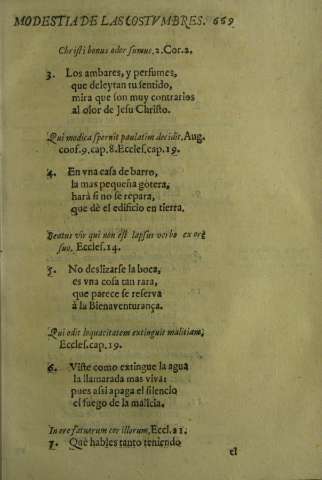 MODESTIA DE LAS COSTVMBRES. 669
Christi bonus odor sumus. 2. Cor. 2.
3. Los ambares, y perfumes,
que deleytan tu sentido,
mira que son muy contrarios
al olor de Jesu Christo.
Qui modica spernit paulatim decidit. Aug.
coof. 9. cap. 8. Eccles. cap. 19.
4. En vna casa de barro,
la mas pequeña gotera,
harà si no se repara,
que dè el edificio en tierra.
Beatus vir qui non est lapsus verbo ex ore
suo. Eccles. 14.
5. No deslizarse la boca,
es vna cosa tan rara,
que parece se reserva
à la Bienaventurança.
Qui odit loquacitatem extinguit malitiam,
Eccles. cap. 19.
6. Viste como extingue la agua
la llamarada mas viva:
pues assi apaga el silencio
el fuego de la malicia.
In ore fatuorum cor illorum, Eccl. 21.
7. Què hables tanto teniendo
el